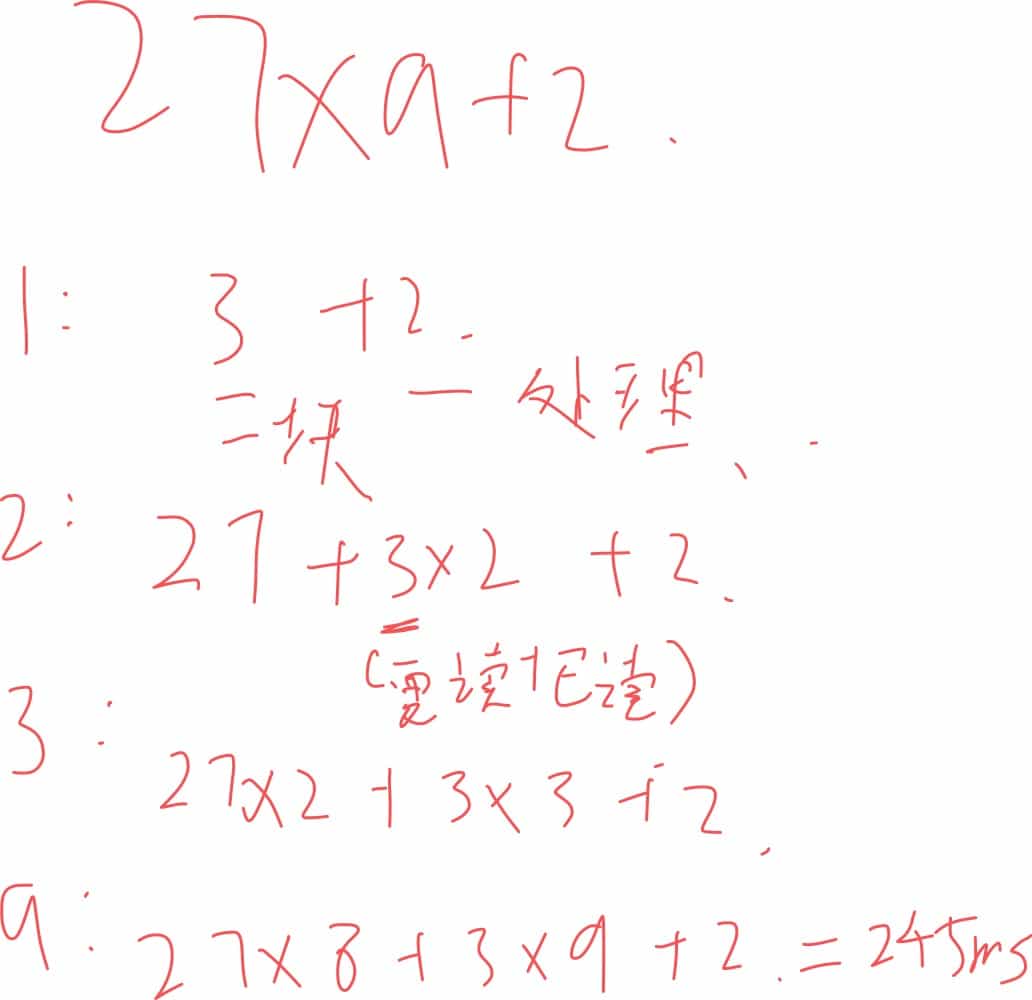 27×9+2.
1: 3 +2.
二块 一 处理、.
2: 27+3×2 +2.
(要读十E读)
3: 27×2+3×3+2.
9: 27×8+3×9+2.=245ms